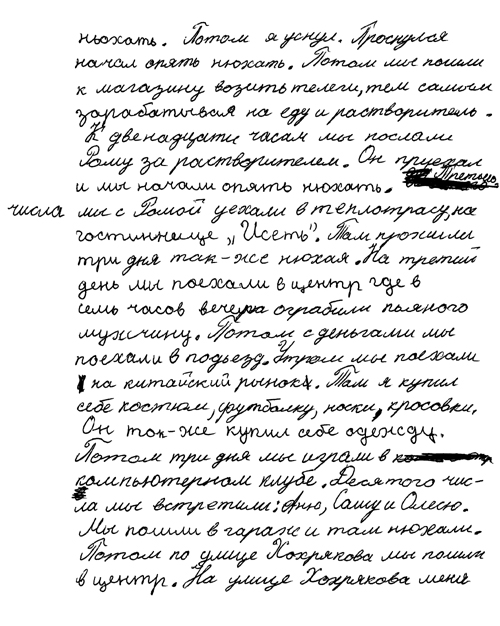 нюхать. Потом я уснул. Проснулся
начал опять нюхать. Потом мы пошли
к магазину возить телеги, тем самым
зарабатывая на еду и растворитель.
К двенадцати часам мы послали
Рому за растворителем. Он приехал
и мы начали опять нюхать. Третьего
числа мы с Ромой уехали в теплотрасу, на
гостиннеце „Исеть". Там прожили
три дня так-же нюхая. На третий
день мы поехали в центр где в
семь часов вечера ограбили пьяного
мужчину. Потом с деньгами мы
поехали в подьезд. Утром мы поехали
на китайский рынок. Там я купил
себе костюм, футболку, носки, кросовки.
Он так-же купил себе одежду.
Потом три дня мы играли в
компьютерном клубе. Десятого чис-
ла мы встретили: Аню, Сашу и Олесю.
Мы пошли в гараж и там нюхали.
Потом по улице Хохрякова мы пошли
в центр. На улице Хохрякова меня